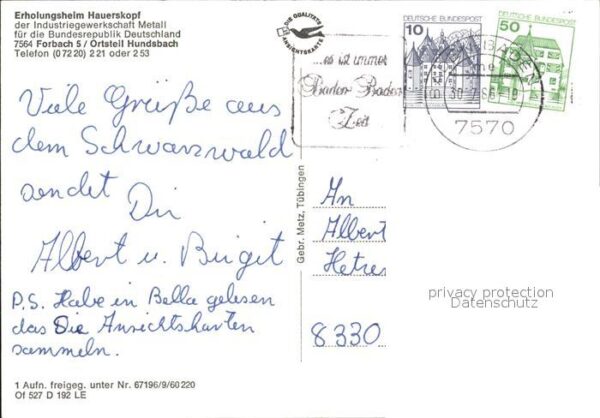 Erholungsheim Hauerskopf
der Industriegewerkschaft Metall
für die Bundesrepublik Deutschland
7564 Forbach 5 / Ortsteil Hundsbach
Telefon (0 72 20) 2 21 oder 2 53
DIE QUALITÄTS
ANSICHTSKARTE
10
DEUTSCHE BUNDESPOST
50
DEUTSCHE BUNDESPOST
...es ist immer
Baden-Baden
Zeit
BADEN
7570
Viele Grüße aus
dem Schwarzwald
sendet Dir
Albert u. Birgit
P.S. Habe in Bella gelesen
das Die Ansichtskarten
sammeln.
Gebr. Metz, Tübingen
An
Albert
8330
privacy protection
Datenschutz
1 Aufn. freigeg. unter Nr. 67196/9/60 220
Of 527 D 192 LE